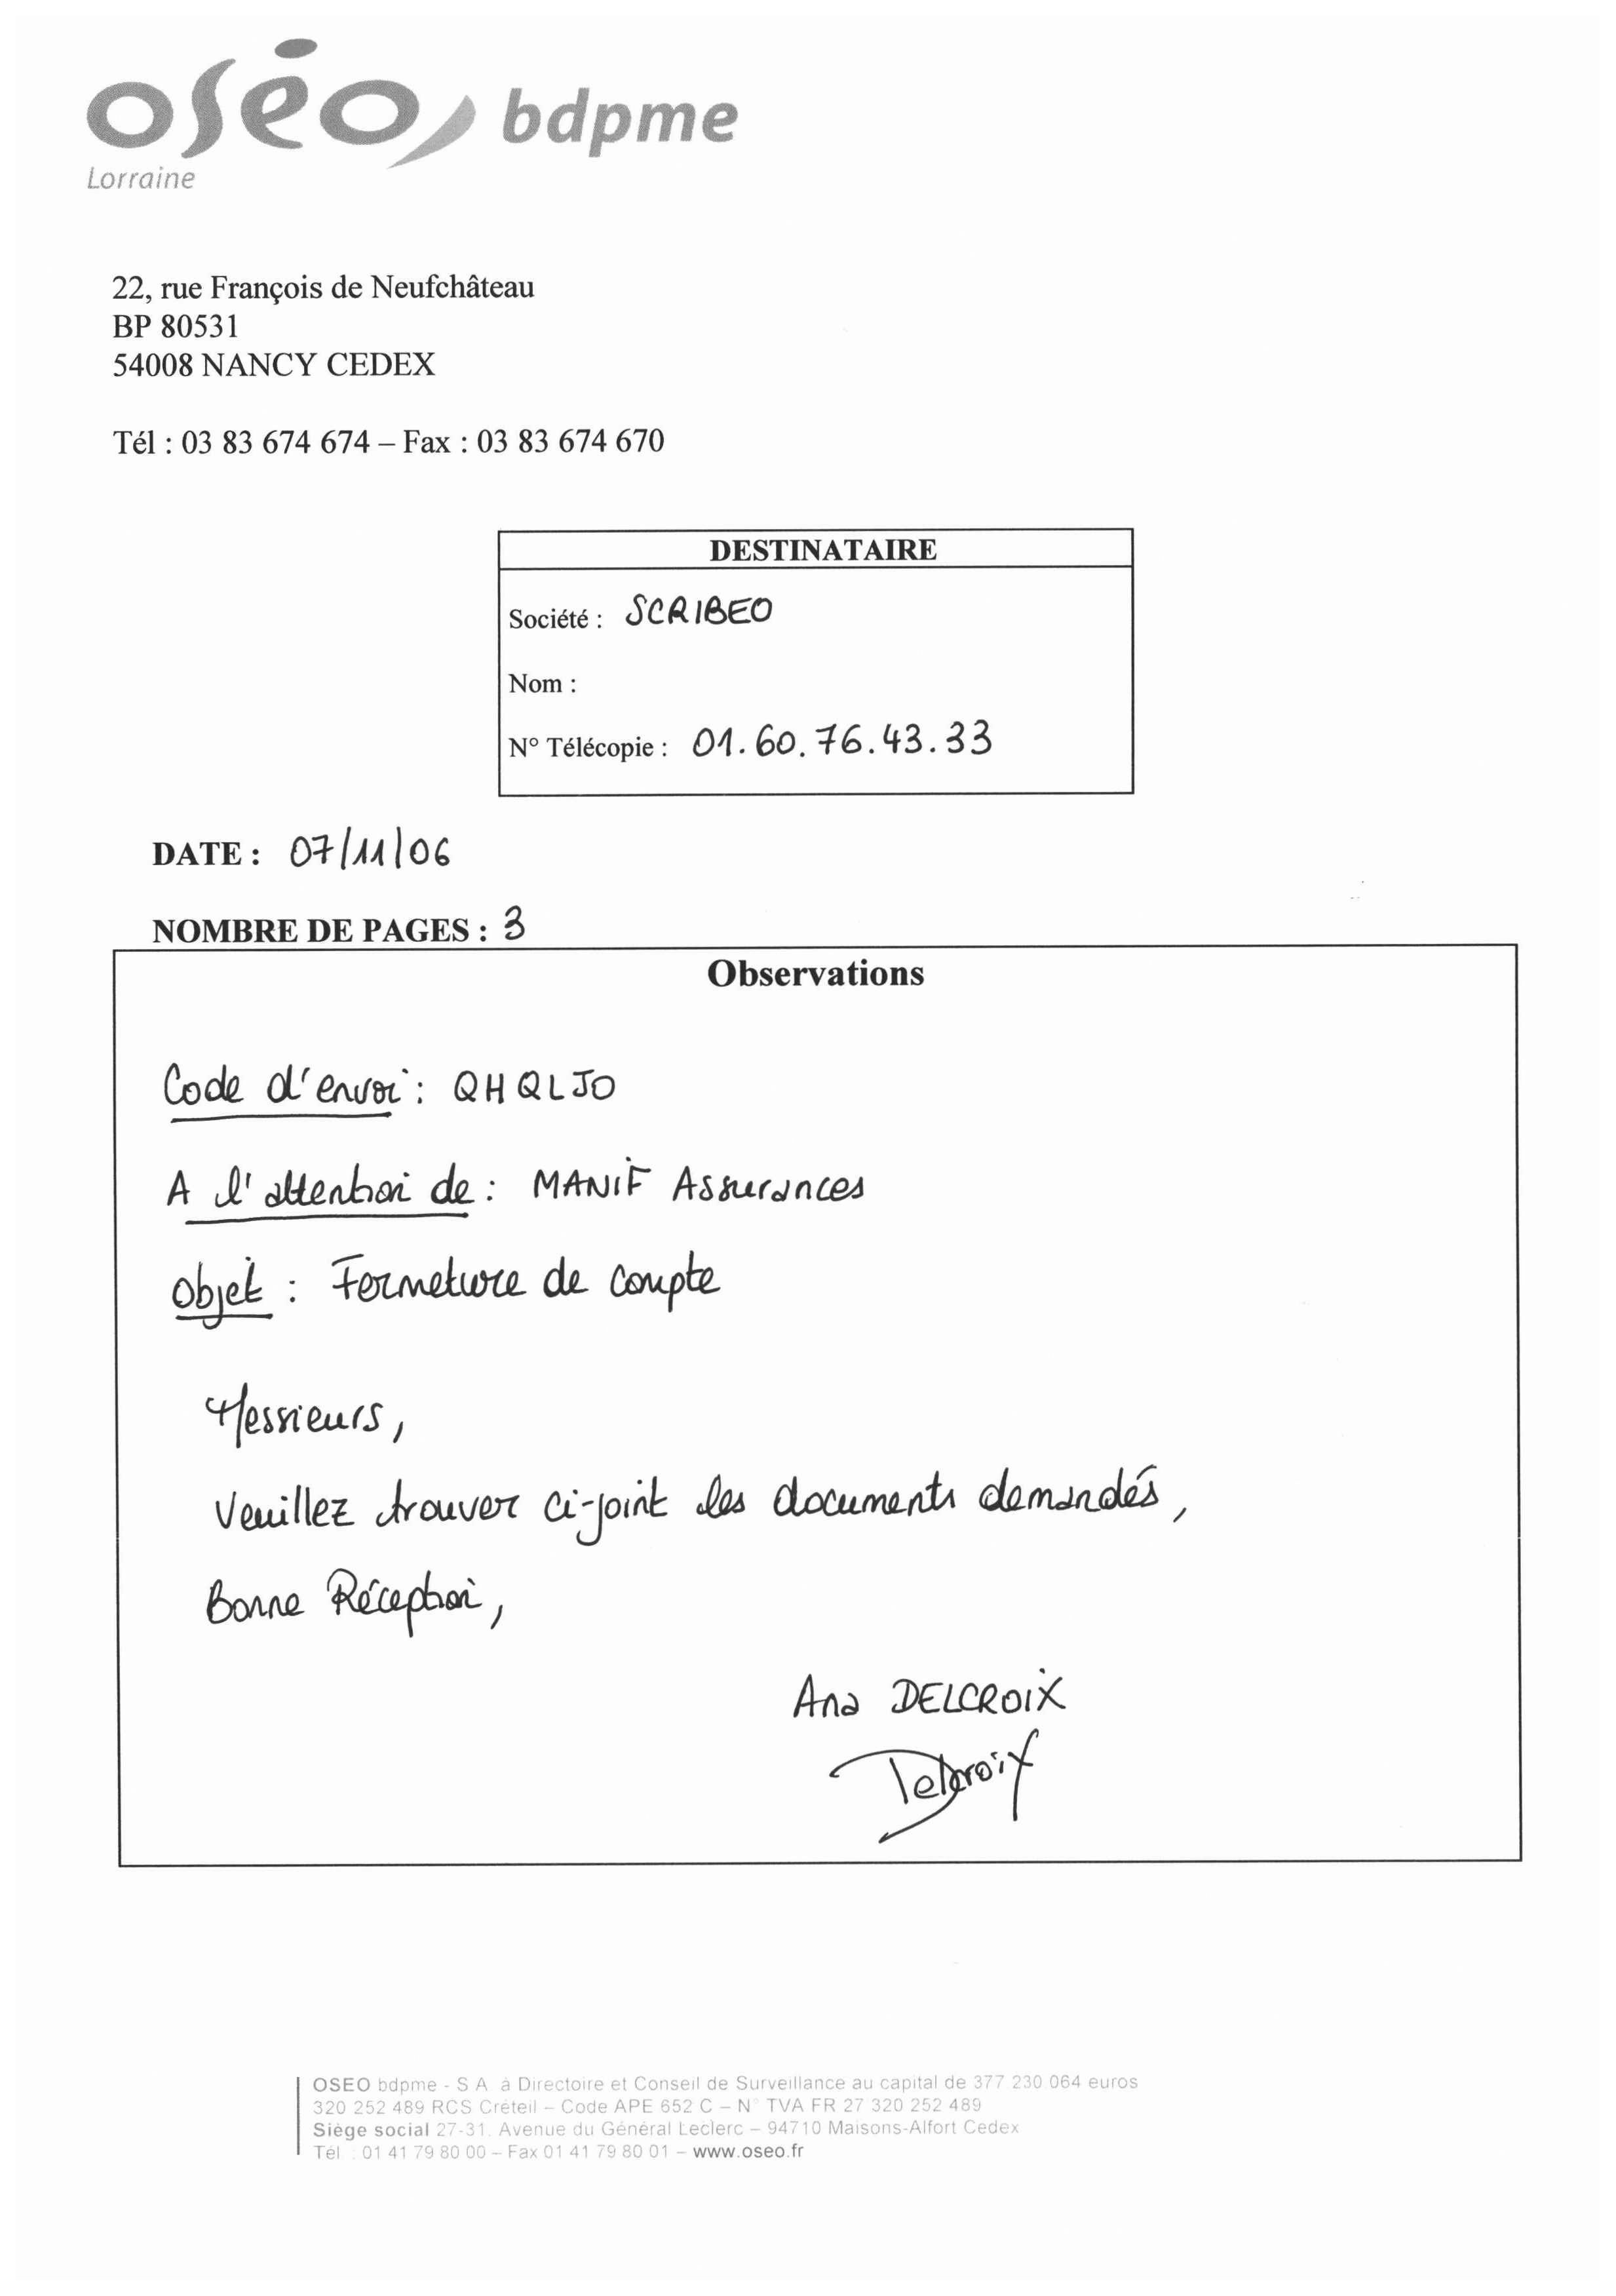 oséo bdpme
Lorraine
22, rue François de Neufchâteau
BP 80531
54008 NANCY CEDEX
Tél : 03 83 674 674 – Fax : 03 83 674 670
DESTINATAIRE
Société : SCRIBEO
Nom :
N° Télécopie : 01.60.76.43.33
DATE : 07/11/06
NOMBRE DE PAGES : 3
Observations
Code d'envoi : QHQLJO
A l'attention de : MANIF Assurances
Objet : Fermeture de compte
Messieurs,
Veuillez trouver ci-joint les documents demandés,
Bonne Réception,
Ana DELCROIX
Delcroix
OSEO bdpme - S A à Directoire et Conseil de Surveillance au capital de 377 230 064 euros
320 252 489 RCS Créteil – Code APE 652 C – N° TVA FR 27 320 252 489
Siège social 27-31, Avenue du Général Leclerc – 94710 Maisons-Alfort Cedex
Tél : 01 41 79 80 00 – Fax 01 41 79 80 01 – www.oseo.fr